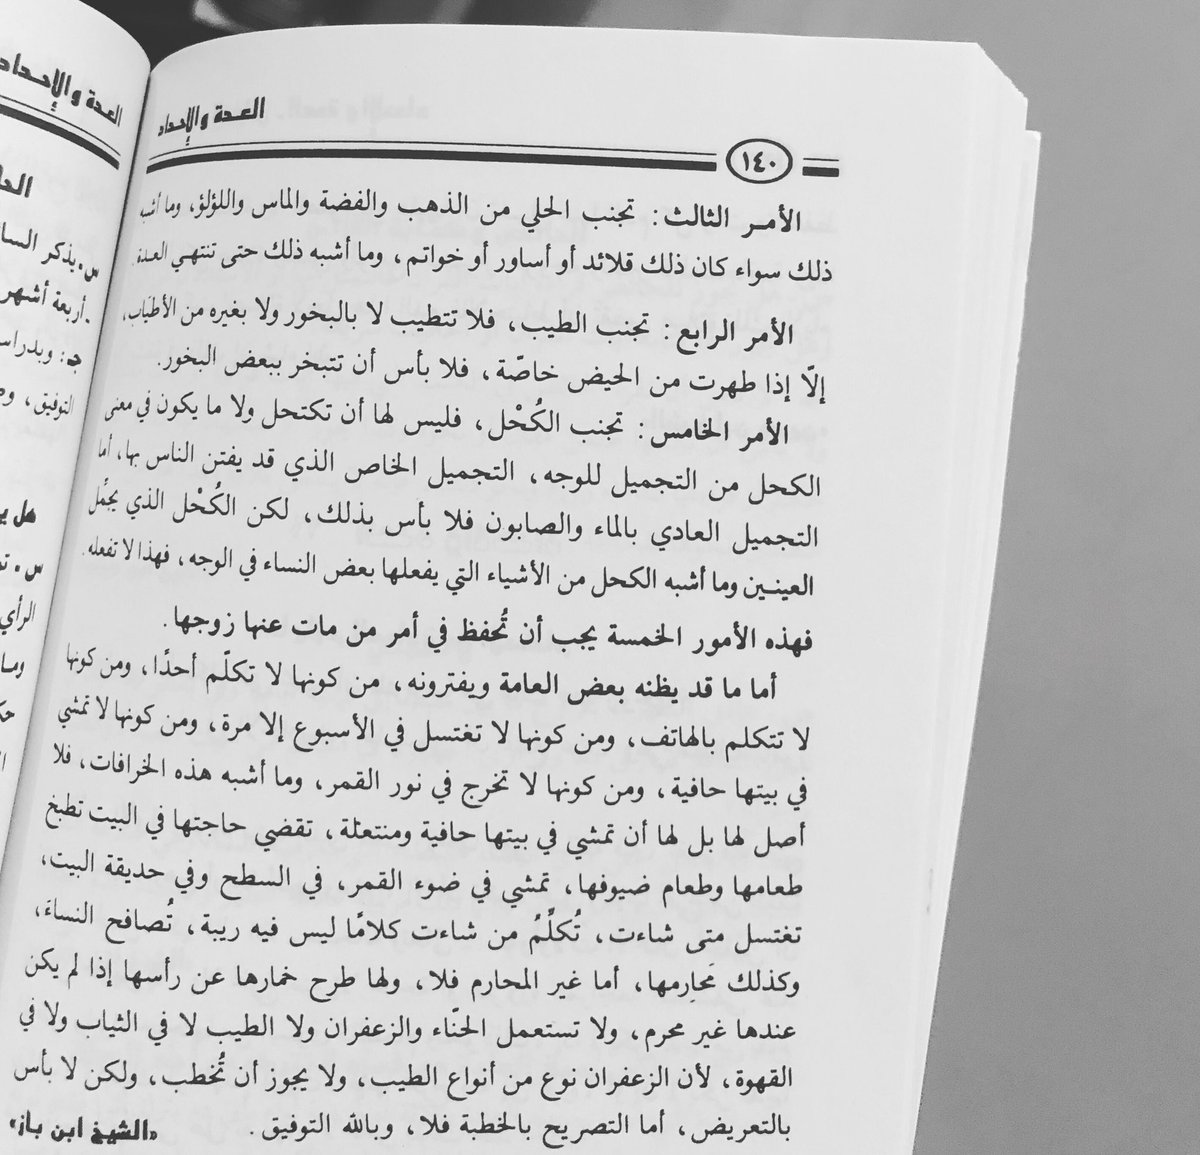 العدة والإحداد
١٤٠
الأمـر الثالث: تجنب الحلي من الذهب والفضة والماس واللؤلؤ، وما أشبه
ذلك سواء كان ذلك قلائد أو أساور أو خواتم، وما أشبه ذلك حتى تنتهي العدة.
الأمر الرابع: تجنب الطيب، فلا تتطيب لا بالبخور ولا بغيره من الأطياب،
إلّا إذا طهرت من الحيض خاصّة، فلا بأس أن تتبخر ببعض البخور.
الأمر الخامس: تجنب الكُحْل، فليس لها أن تكتحل ولا ما يكون في معنى
الكحل من التجميل للوجه، التجميل الخاص الذي قد يفتن الناس بها، أما
التجميل العادي بالماء والصابون فلا بأس بذلك، لكن الكُحْل الذي يجمِّل
العينـين وما أشبه الكحل من الأشياء التي يفعلها بعض النساء في الوجه، فهذا لا تفعله.
فهذه الأمور الخمسة يجب أن تُحفظ في أمر من مات عنها زوجها.
أما ما قد يظنه بعض العامة ويفترونه، من كونها لا تكلّم أحدًا، ومن كونها
لا تتكلم بالهاتف، ومن كونها لا تغتسل في الأسبوع إلا مرة، ومن كونها لا تمشي
في بيتها حافية، ومن كونها لا تخرج في نور القمر، وما أشبه هذه الخرافات، فلا
أصل لها بل لها أن تمشي في بيتها حافية ومنتعلة، تقضي حاجتها في البيت تطبخ
طعامها وطعام ضيوفها، تمشي في ضوء القمر، في السطح وفي حديقة البيت،
تغتسل متى شاءت، تُكلِّمُ من شاءت كلامًا ليس فيه ريبة، تُصافح النساءَ،
وكذلك مَحارِمها، أما غير المحارم فلا، ولها طرح خمارها عن رأسها إذا لم يكن
عندها غير محرم، ولا تستعمل الحنّاء والزعفران ولا الطيب لا في الثياب ولا في
القهوة، لأن الزعفران نوع من أنواع الطيب، ولا يجوز أن تُخطب، ولكن لا بأس
بالتعريض، أما التصريح بالخطبة فلا، وبالله التوفيق.
«الشيخ ابن باز»
العدة والإحداد
س. يذكر
أربعة أشهر
جـ:
التوفيق،
هل
س.
الرأي